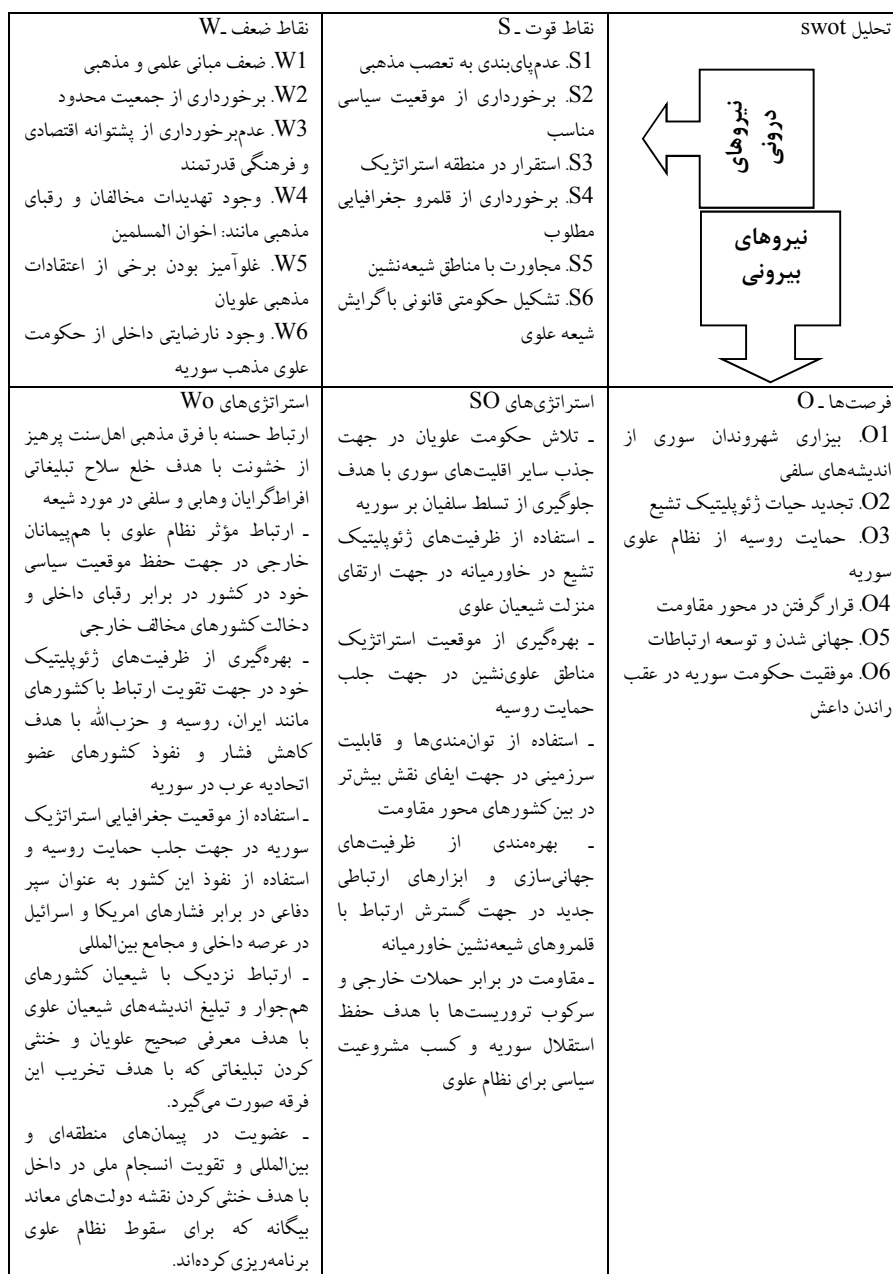 تحلیل swot
نیروهای
درونی
نیروهای
بیرونی
نقاط قوت ـ S
S1. عدم‌پای‌بندی به تعصب مذهبی
S2. برخورداری از موقعیت سیاسی
مناسب
S3. استقرار در منطقه استراتژیک
S4. برخورداری از قلمرو جغرافیایی
مطلوب
S5. مجاورت با مناطق شیعه‌نشین
S6. تشکیل حکومتی قانونی با گرایش
شیعه علوی
نقاط ضعف ـW
W1. ضعف مبانی علمی و مذهبی
W2. برخورداری از جمعیت محدود
W3. عدم‌برخورداری از پشتوانه اقتصادی
و فرهنگی قدرتمند
W4. وجود تهدیدات مخالفان و رقبای
مذهبی مانند: اخوان المسلمین
W5. غلوآمیز بودن برخی از اعتقادات
مذهبی علویان
W6. وجود نارضایتی داخلی از حکومت
علوی مذهب سوریه
فرصت‌ها ـ O
O1. بیزاری شهروندان سوری از
اندیشه‌های سلفی
O2. تجدید حیات ژئوپلیتیک تشیع
O3. حمایت روسیه از نظام علوی
سوریه
O4. قرار گرفتن در محور مقاومت
O5. جهانی شدن و توسعه ارتباطات
O6. موفقیت حکومت سوریه در عقب
راندن داعش
استراتژی‌های SO
ـ تلاش حکومت علویان در جهت
جذب سایر اقلیت‌های سوری با هدف
جلوگیری از تسلط سلفیان بر سوریه
ـ استفاده از ظرفیت‌های ژئوپلیتیک
تشیع در خاورمیانه در جهت ارتقای
منزلت شیعیان علوی
ـ بهره‌گیری از موقعیت استراتژیک
مناطق علوی‌نشین در جهت جلب
حمایت روسیه
ـ استفاده از توان‌مندی‌ها و قابلیت
سرزمینی در جهت ایفای نقش بیش‌تر
در بین کشورهای محور مقاومت
ـ بهره‌مندی از ظرفیت‌های
جهانی‌سازی و ابزارهای ارتباطی
جدید در جهت گسترش ارتباط با
قلمروهای شیعه‌نشین خاورمیانه
ـ مقاومت در برابر حملات خارجی و
سرکوب تروریست‌ها با هدف حفظ
استقلال سوریه و کسب مشروعیت
سیاسی برای نظام علوی
استراتژی‌های Wo
ارتباط حسنه با فرق مذهبی اهل‌سنت پرهیز
از خشونت با هدف خلع سلاح تبلیغاتی
افراط‌گرایان وهابی و سلفی در مورد شیعه
ـ ارتباط مؤثر نظام علوی با هم‌پیمانان
خارجی در جهت حفظ موقعیت سیاسی
خود در کشور در برابر رقبای داخلی و
دخالت کشورهای مخالف خارجی
ـ بهره‌گیری از ظرفیت‌های ژئوپلیتیک
خود در جهت تقویت ارتباط با کشورهای
مانند ایران، روسیه و حزب‌الله با هدف
کاهش فشار و نفوذ کشورهای عضو
اتحادیه عرب در سوریه
ـ استفاده از موقعیت جغرافیایی استراتژیک
سوریه در جهت جلب حمایت روسیه و
استفاده از نفوذ این کشور به عنوان سپر
دفاعی در برابر فشارهای امریکا و اسرائیل
در عرصه داخلی و مجامع بین‌المللی
ـ ارتباط نزدیک با شیعیان کشورهای
هم‌جوار و تبلیغ اندیشه‌های شیعیان علوی
با هدف معرفی صحیح علویان و خنثی
کردن تبلیغاتی که با هدف تخریب این
فرقه صورت می‌گیرد.
ـ عضویت در پیمان‌های منطقه‌ای و
بین‌المللی و تقویت انسجام ملی در داخل
با هدف خنثی کردن نقشه دولت‌های معاند
بیگانه که برای سقوط نظام علوی
برنامه‌ریزی کرده‌اند.